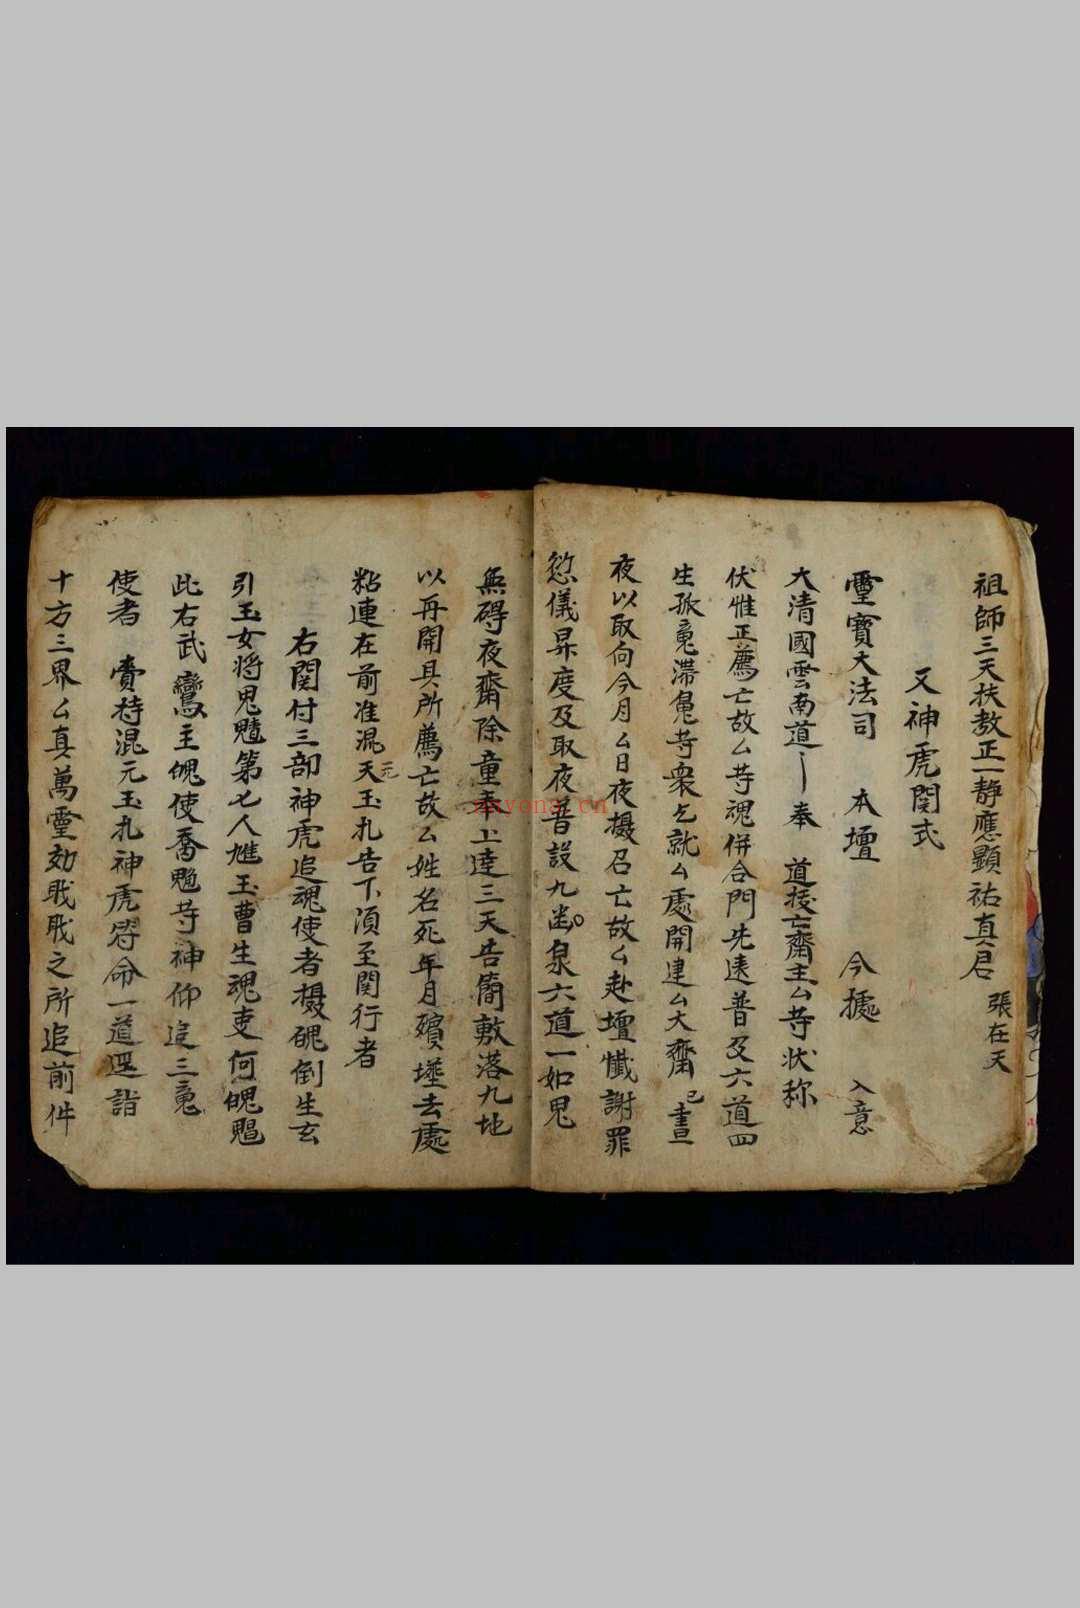 祖師三天扶教正一靜應顯祐真君 張在天
又神虎関式
靈寳大法司 本壇 今據 入意
大清國雲南道 奉 道抜亡齋主厶䓁状称
伏惟正薦亡故厶䓁魂併合門先逺普及六道四
生孤䰟滞䰟䓁衆乞就厶處開建厶大齋 已晝
夜以取向今月厶日夜摄召亡故厶赴壇懺謝罪
愆儀昇度及取夜普設九幽泉六道一如
無碍夜齋除童奉上達三天告簡敷落九地
以再開具所薦亡故厶姓名死年月殯塟去處
粘連在前准混天元玉札告下湏至関行者
右関付三部神虎追魂使者摄魄倒生玄
引玉女將 第七人 玉曹生魂吏何
此右武 主 使喬 䓁神仰追三䰟
使者 賫持混元玉札神虎符命一道逕詣
十方三界厶真萬靈 之所追前件
zayona.cn